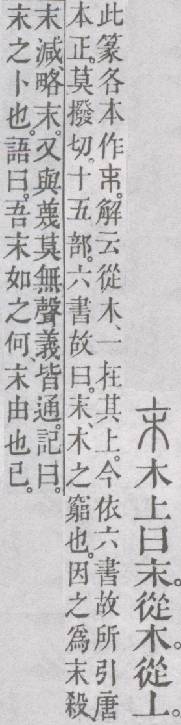 末木上曰末。從木。從上。
此篆各本作末。解云從木、一在其上。今依六書故所引唐
本正。莫撥切。十五部。六書故曰。末、木之窮也。因之為末殺
末減、略末。又與蔑莫無聲義皆通。記曰。
末之卜也。語曰。吾末如之何、末由也已。